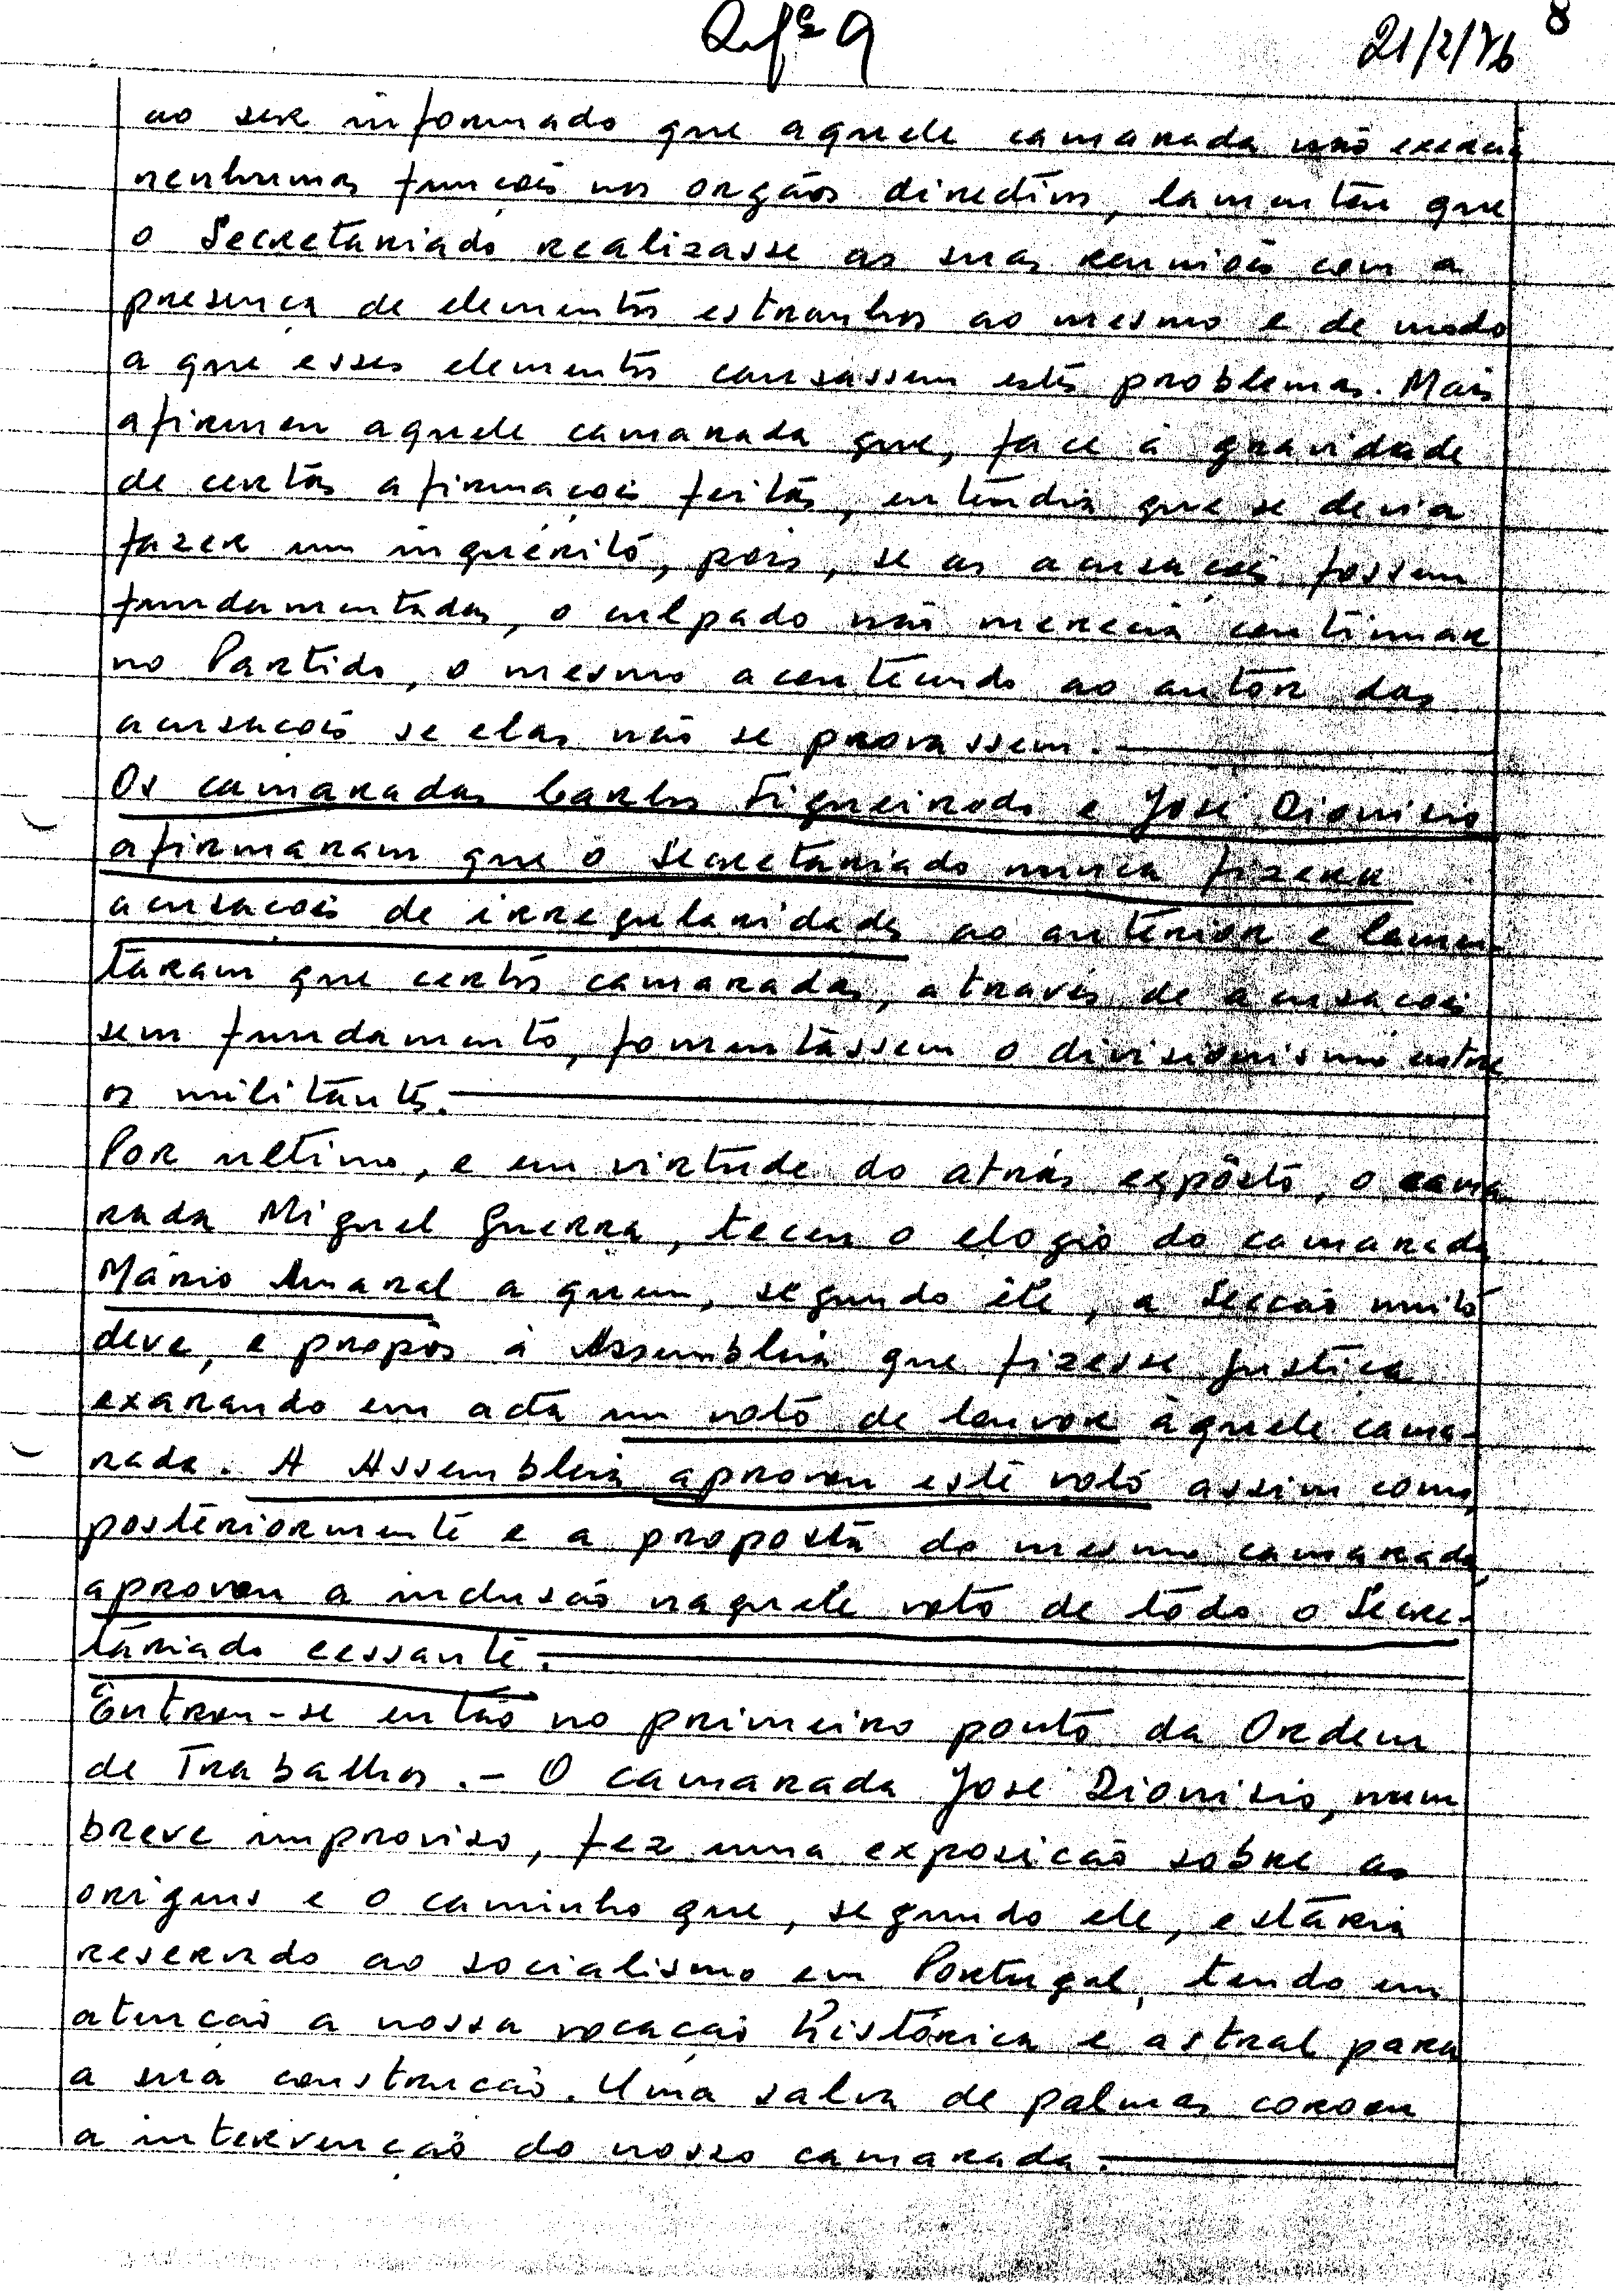 Refª 9
21/2/76
8
ao ser informado que aquele camarada não exercia
nenhumas funções nos orgãos directivos, lamentou que
o Secretariado realizasse as suas reuniões com a
presença de elementos estranhos ao mesmo e de modo
a que esses elementos causassem estes problemas. Mais
afirmou aquele camarada que, face à gravidade
de certas afirmações feitas, entendia que se devia
fazer um inquérito, pois, se as acusações fossem
fundamentadas, o culpado não merecia continuar
no Partido, o mesmo acontecendo ao autor das
acusações se elas não se provassem.
Os camaradas Carlos Figueiredo e José Dionisio
afirmaram que o Secretariado nunca fizera
acusações de irregularidades ao anterior e lamen-
taram que certos camaradas, através de acusações
sem fundamento, fomentassem o divisionismo entre
os militantes.
Por ultimo, e em virtude do atrás expôsto, o cama
rada Miguel Guerra, teceu o elogio do camarada
Mário Amaral a quem, segundo êle, a Secção muito
deve, e propôs à Assembleia que fizesse justiça
exarando em acta um voto de louvor àquele cama-
rada. A Assembleia aprovou este voto assim como,
posteriormente e a proposta do mesmo camarada,
aprovou a inclusão naquele voto de todo o Secre-
tariado cessante.
Entrou-se então no primeiro ponto da Ordem
de Trabalhos.- O camarada José Dionisio, num
breve improviso, fez uma exposição sobre as
origens e o caminho que, segundo ele, estaria
reservado ao socialismo em Portugal, tendo em
atenção a nossa vocação histórica e astral para
a sua construção. Uma salva de palmas coroou
a intervenção do nosso camarada.